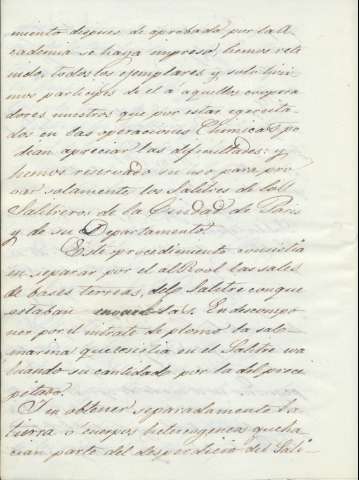 miento despues de aprobado por la A-
cademia se haya impreso, hemos rete
nido todos los ejemplares y solo hici-
mos participes de el a aquellos coopera
dores nuestros que por estar egercita-
dos en las operaciones Chimicas po
dian apreciar las dificultades: y
hemos reservado su uso para pro
var solamente los Salitres de los
Salitreros de la Ciudad de Paris
y de su Departamento.
Este procedimiento consistia
en separar por el alkool las sales
de bases terreas, del Salitre con que
estaban las. En descompo-
ner por el nitrato de plomo la sal
marina que existia en el Salitre va
luando su cantidad por la del preci
pitado.
I en obtener separadamente la
tierra o cuerpos heterogeneos que ha
cian parte del desperdicio del Sali-